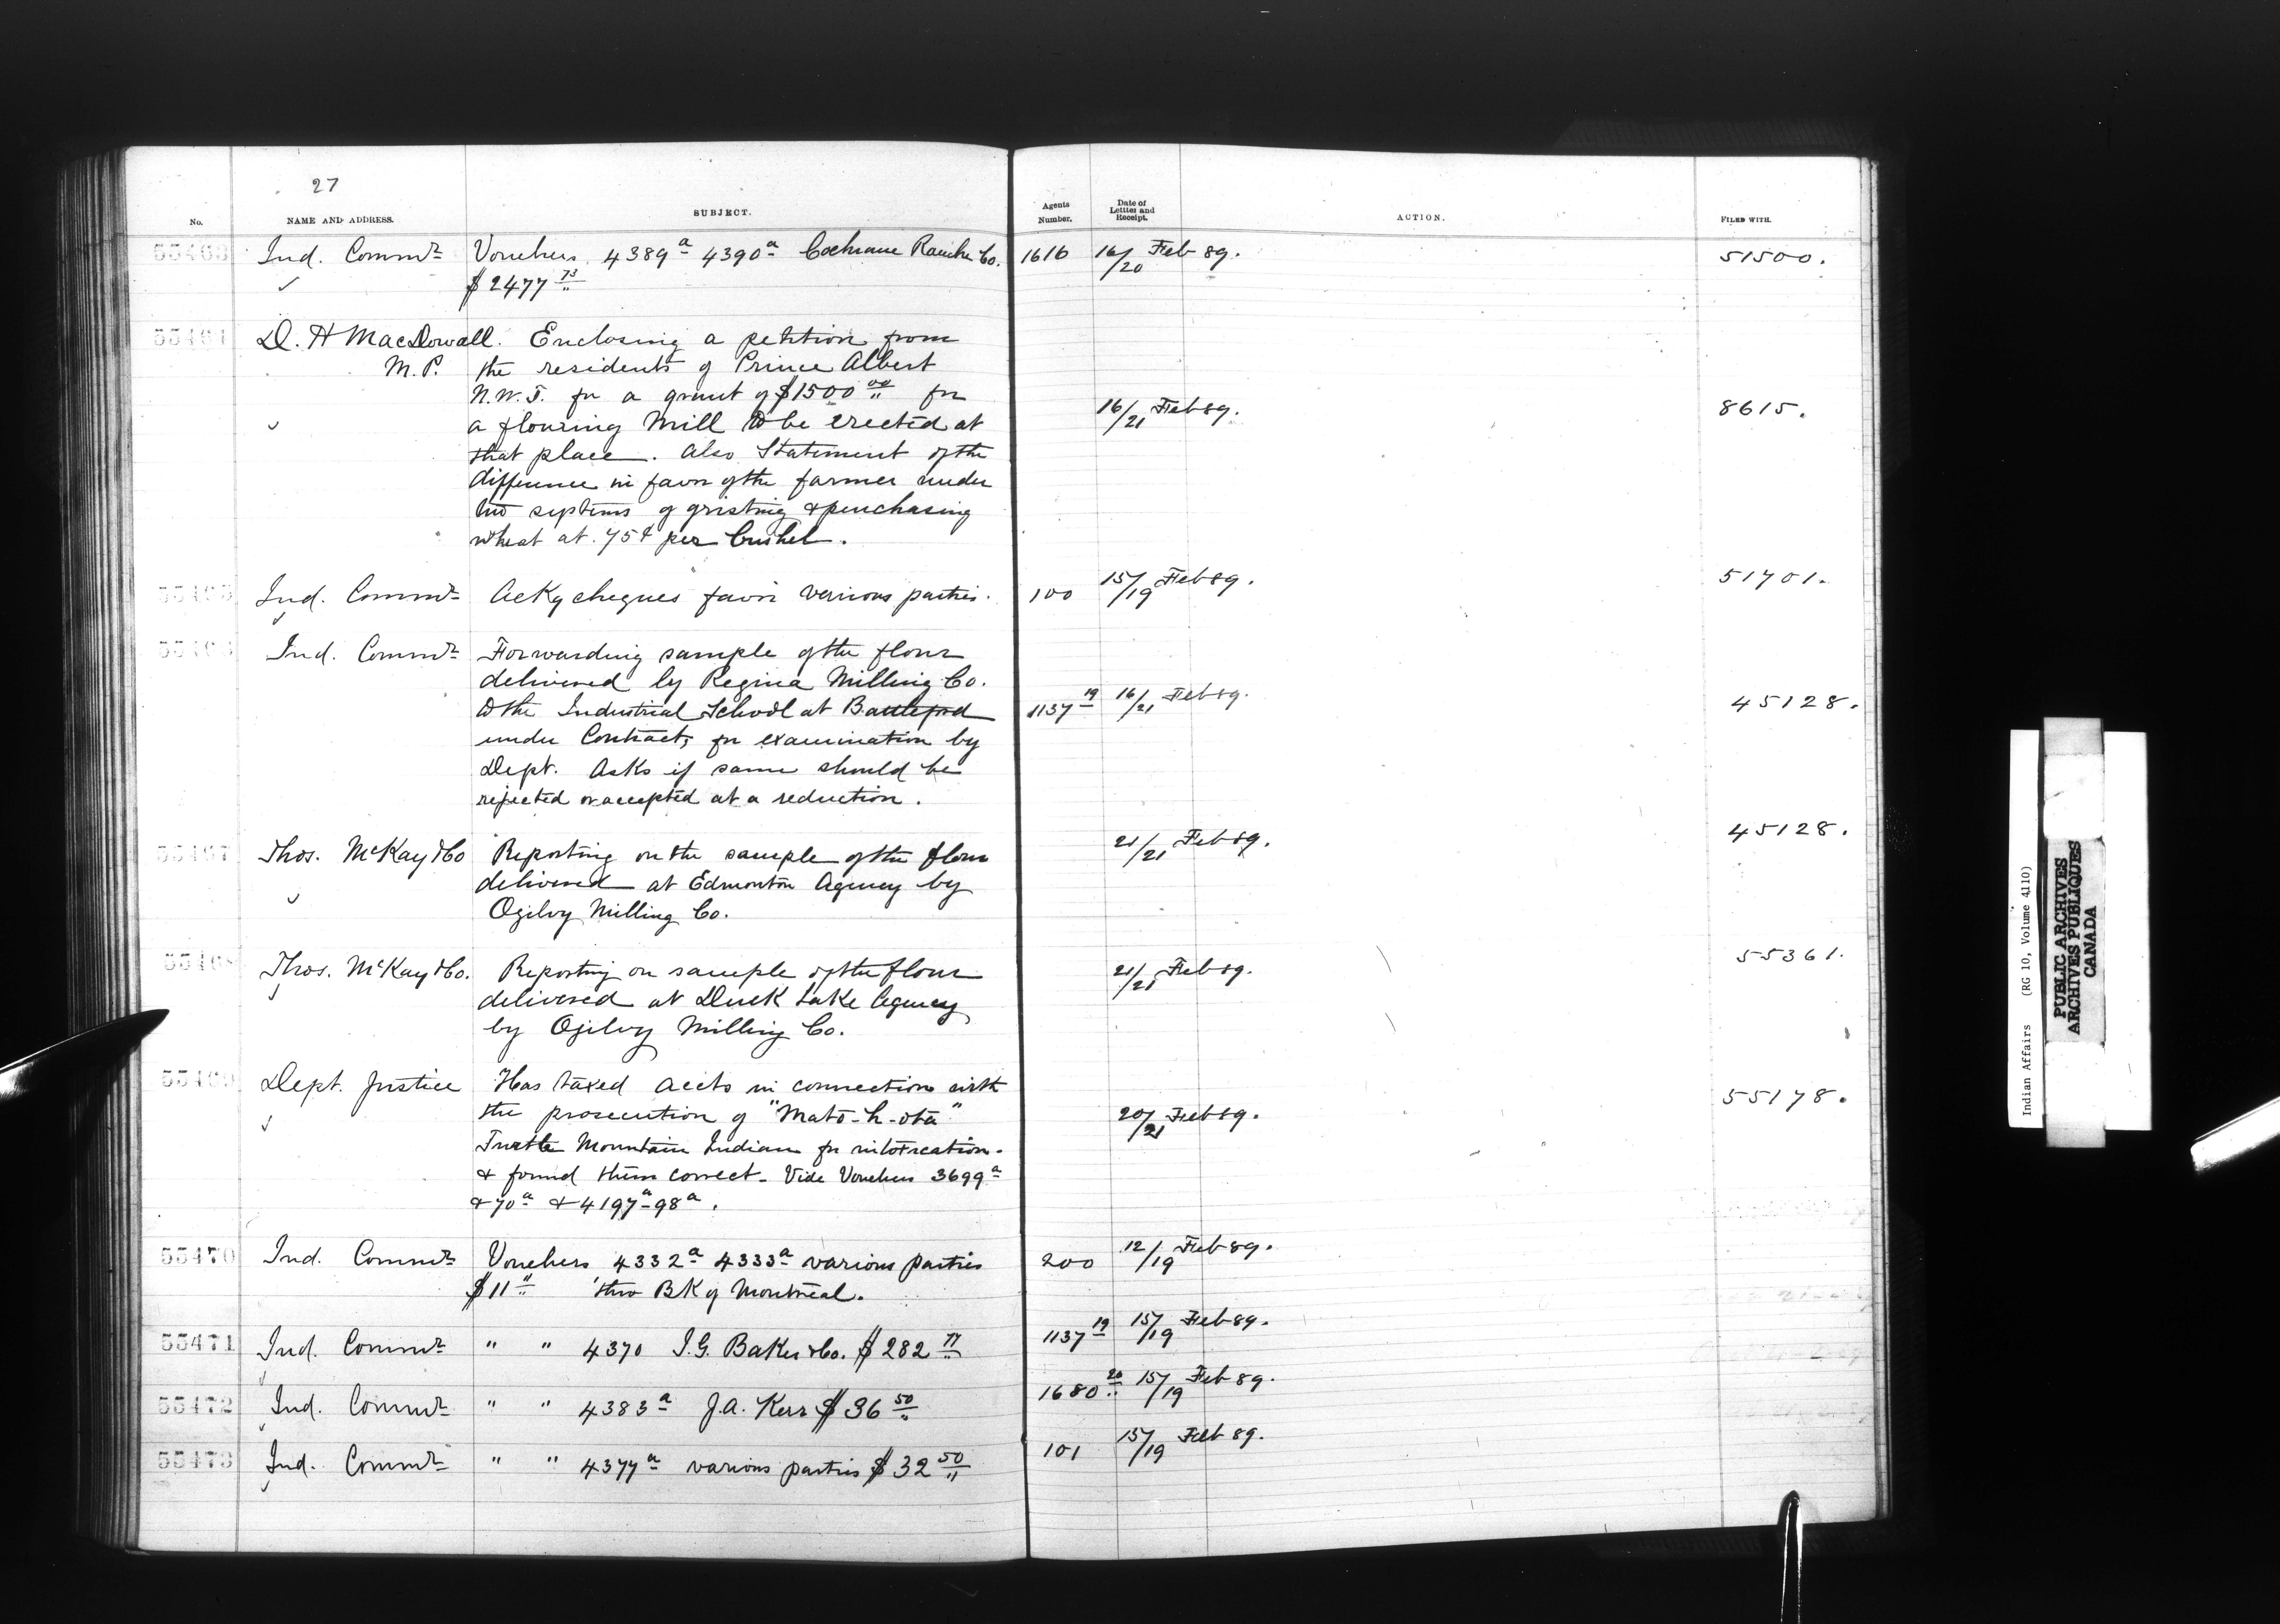 27
No. NAME AND ADDRESS. SUBJECT. Agents Number. Date of Letter and Receipt. ACTION. FILED WITH.
55463 Ind. Commr Vouchers 4389a 4390a Cochrane Ranche Co. 1616 16/20 Feb 89. 51500.
$2477 73
55464 D. H MacDowall. Enclosing a petition from
M.P. the residents of Prince Albert
N.W.T. for a grant of $1500 00 for
a flouring Mill to be erected at 16/21 Feb 89. 8615.
that place. Also Statement of the
difference in favor of the farmer under
two systems of gristing & purchasing
wheat at 75¢ per bushel.
55465 Ind. Commr Ackg cheques favor various parties. 100 15/19 Feb 89. 51701.
55466 Ind. Commr Forwarding sample of the flour
delivered by Regina Milling Co.
to the Industrial School at Battleford 1137 19 16/21 Feb 89. 45128.
under Contract, for examination by
Dept. Asks if same should be
rejected or accepted at a reduction.
55467 Thos. McKay & Co Reporting on the sample of the flour 21/21 Feb 89. 45128.
delivered at Edmonton Agency by
Ogilvy Milling Co.
55468 Thos. McKay & Co. Reporting on sample of the flour 21/21 Feb 89. 55361.
delivered at Duck Lake Agency
by Ogilvy Milling Co.
55469 Dept. Justice Has taxed accts in connection with 55178.
the prosecution of "Mato-h-ota" 20/21 Feb 89.
Turtle Mountain Indian for intoxication.
& found them correct. Vide Vouchers 3699a
& 70a & 4197a-98a.
55470 Ind. Commr Vouchers 4332a 4333a various parties 200 12/19 Feb 89.
$11 " thro BK of Montreal.
55471 Ind. Commr " " 4370 I.G. Baker & Co. $282 77 1137 19 15/19 Feb 89.
55472 Ind. Commr " " 4383a J.A. Kerr $36 50 1680 20 15/19 Feb 89.
55473 Ind. Commr " " 4377a various parties $32 50 101 15/19 Feb 89.
Indian Affairs (RG 10, Volume 4110)
PUBLIC ARCHIVES
ARCHIVES PUBLIQUES
CANADA